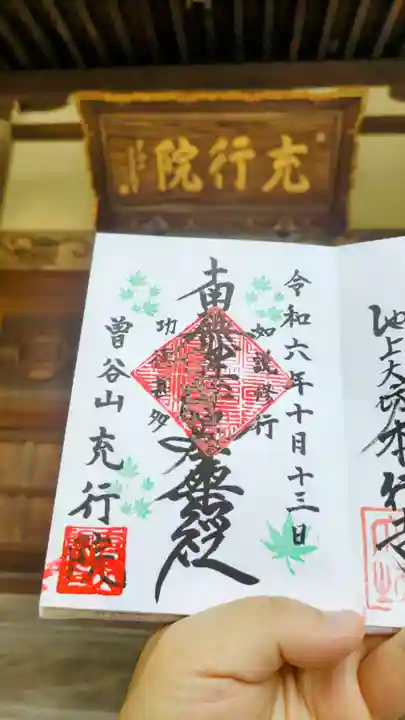 充行院
令和六年十月十三日
如説修行
南無妙法蓮華経
功徳無多
曽谷山 充行院
池上大坊本行寺